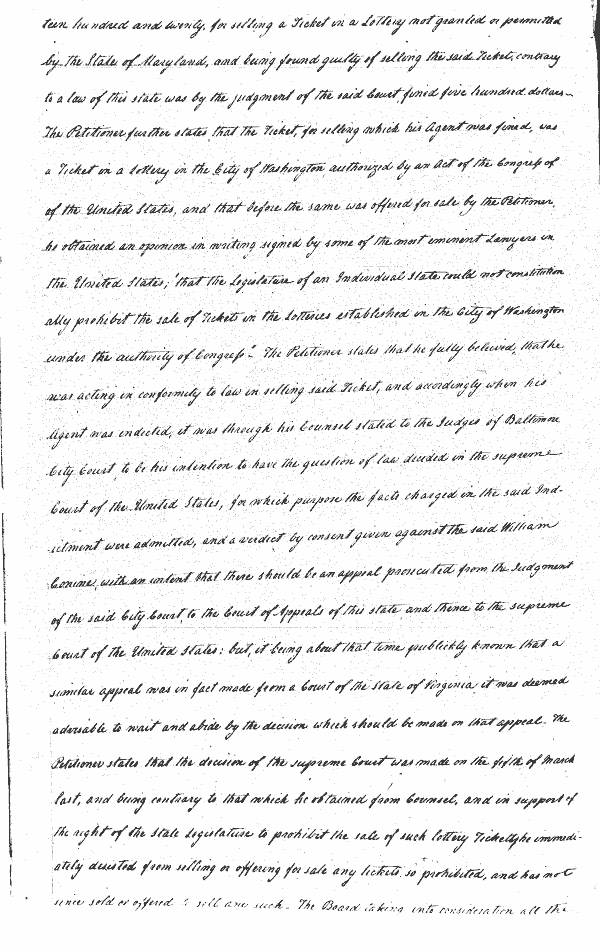 teen hundred and twenty, for selling a Ticket in a Lottery not granted or permitted
by the State of Maryland, and being found guilty of selling the said Ticket, contrary
to a law of this state was by the judgment of the said Court fined five hundred dollars—
The Petitioner further states, that the Ticket, for selling which his Agent was fined, was
a Ticket in a Lottery in the City of Washington, authorized by an Act of the Congress of
of the United States, and that before the same was offered for sale by the Petitioner,
he obtained an opinion in writing signed by some of the most eminent Lawyers in
the United States, "that the Legislature of an Individual State could not constitution
ally prohibit the sale of Tickets in the Lotteries established in the City of Washington
under the authority of Congress". The Petitioner states that he fully believed, that he
was acting in conformity to law in selling said Ticket, and accordingly when his
Agent was indicted, it was through his Counsel stated to the Judges of Baltimore
City Court, to be his intention to have the question of law decided in the supreme
Court of the United States, for which purpose the facts charged in the said Ind-
ictment were admitted, and a verdict by consent given against the said William
with an intent that there should be an appeal prosecuted from the Judgment
of the said City Court, to the Court of Appeals of this state, and thence to the supreme
Court of the United States: but, it being about that time publickly known that a
similar appeal was in fact made from a Court of the State of Virginia, it was deemed
adviseable to wait and abide by the decision which should be made on that appeal. The
Petitioner states that the decision of the supreme Court was made on the fifth of March
last, and being contrary to that which he obtained from Counsel, and in support of
the right of the state legislature to prohibit the sale of such lottery Tickets, he immedi-
ately desisted from selling or offering for sale any tickets so prohibited, and has not
since sold or offered to sell any such. The Board taking into consideration all the